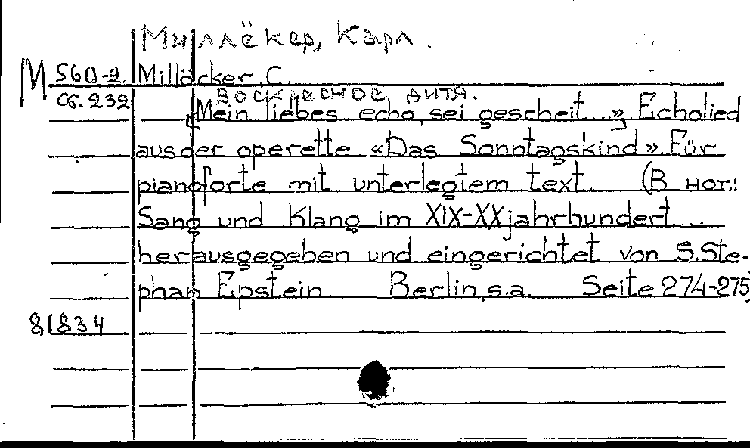 Миллёкер, Карл.
М 560-2 Millöcker, C.
Сб. 232 воскресное дитя.
„Mein liebes echo, sei gescheit...” Echolied
aus der operette «Das Sonntagskind» Für
pianoforte mit unterlegtem text. (В нот.:
Sang und Klang im XIX-XX jahrhundert...
herausgegeben und eingerichtet von S. Ste-
phan Epstein Berlin, s.a. Seite 274-275
81834